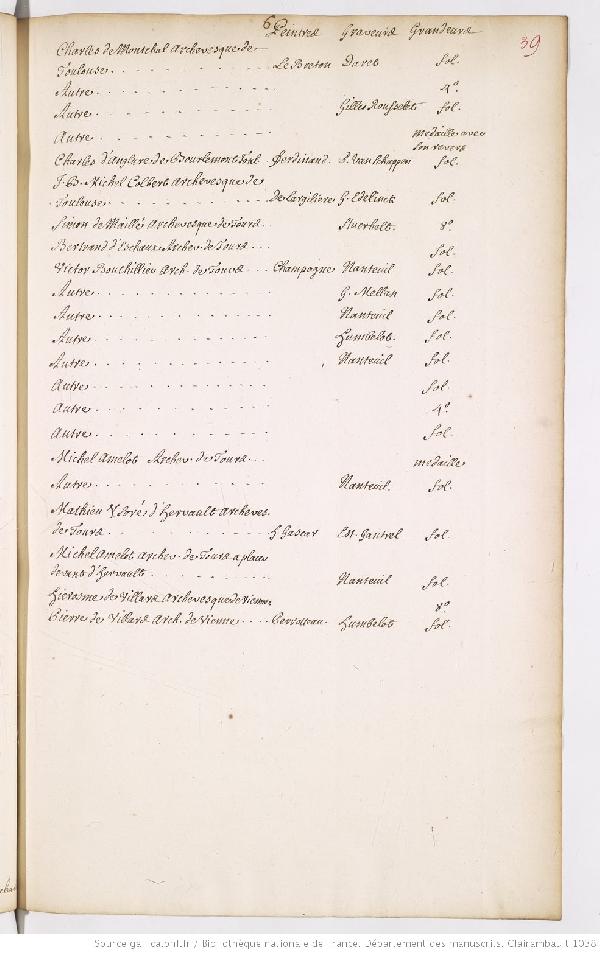 6
Peintres Graveurs Grandeurs
39
Charles de Montchal Archevesque de
Toulouse Le Breton Daret fol.
Autre 4º
Autre Gilles Rousselet fol.
Autre medaille avec
son revers
Charles d'Anglure de Bourlemont Toul. Ferdinand P. Van Schuppen fol.
J. B. Michel Colbert Archevesque de
Toulouse de Largiliere G. Edelinck fol.
Simon de Maillé Archevesque de Tours 8º
Bertrand d'Eschaux Archev. de Tours fol.
Victor Bouthillier Arch. de Tours Champagne Nanteuil fol.
Autre G. Mellan fol.
Autre Nanteuil fol.
Autre Humbelot fol.
Autre Nanteuil fol.
Autre fol.
Autre 4º
Autre fol.
Michel Amelot Archev. de Tours medaille
Autre Nanteuil fol.
Mathieu Ysoré d'Hervault Archeves.
de Tours H Gascar Est. Gantrel fol.
Michel Amelot Archev. de Tours a placer
devant d'Hervault Nanteuil fol.
Hierosme de Villars Archevesque de Vienne 8º
Pierre de Villars Arch. de Vienne Humbelot fol.
Source gallica.bnf.fr / Bibliothèque nationale de France. Département des manuscrits. Clairambault 1038